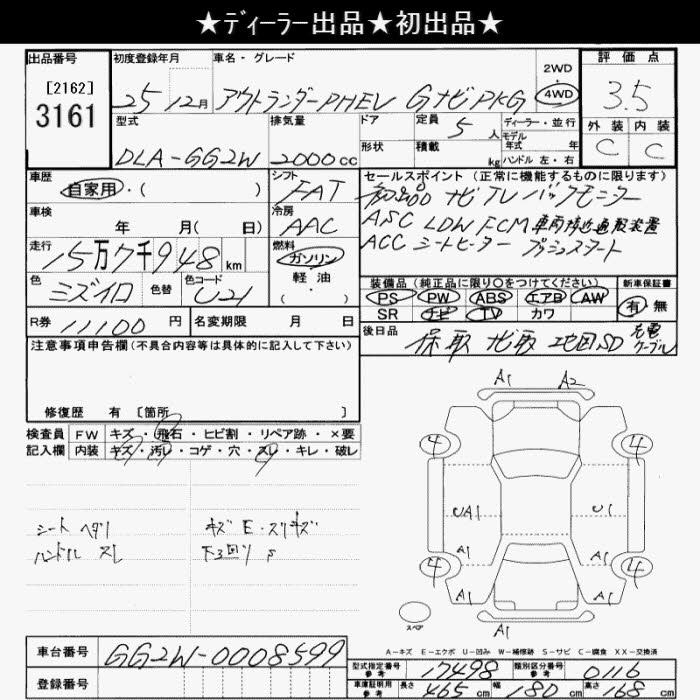 ★ディーラー出品★初出品★
出品番号 [2162] 3161
初度登録年月 25 12月
車名・グレード アウトランダーPHEV GナビPKG
2WD 4WD
評価点 3.5
外装 C 内装 C
型式 DLA-GG2W
排気量 2000cc
ドア 形状
定員 5人 積載 kg
ディーラー・並行
モデル年式 年
ハンドル 左・右
車歴 自家用・( )
シフト FAT
車検 年 月( 日)
冷房 AAC
走行 15万7千948km
燃料 ガソリン 軽油 ( ・ )
色 ミズイロ 色替 色コード U21
R券 11100円 名変期限 月 日
セールスポイント (正常に機能するものに限ります)
初出品 ナビ TV バックモニター
ASC LDW FCM 車両接近通報装置
ACC シートヒーター プッシュスタート
装備品(純正品に限り○をつけてください) 新車保証書
PS PW ABS エアB AW 有・無
SR ナビ TV カワ
後日品 保 取 ナビ取 地図SD 充電ケーブル
注意事項申告欄(不具合内容等は具体的に記入して下さい)
修復歴 有 [箇所 ]
検査員 FW キズ・飛石・ヒビ割・リペア跡・×要
記入欄 内装 キズ・汚レ・コゲ・穴・スレ・キレ・破レ
シート ヘタリ キズ E・スリキズ
ハンドル スレ 下回り S
A1 A2
4 4
UA1 U1
A1 A1
4 4
A1 A1
スペア
A1
A-キズ E-エクボ U-凹み W-補修跡 S-サビ C-腐食 XX-交換済
車台番号 GG2W-0008599
登録番号
型式指定番号 参考 17498 類別区分番号 参考 0116
車庫証明用 参考 長さ 465cm 幅 180cm 高さ 168cm